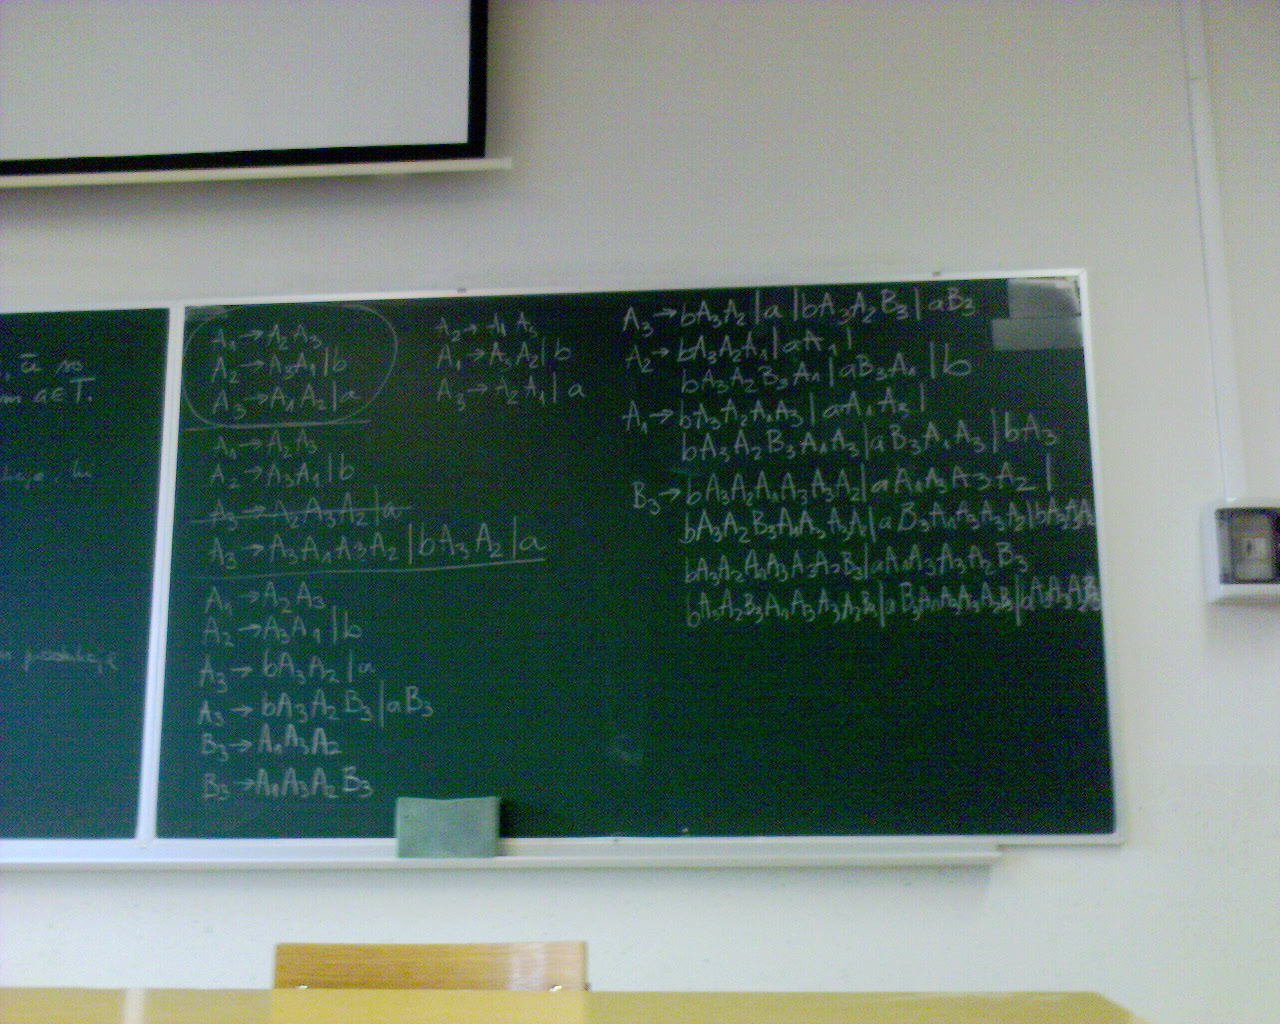 , ā so
m a∈T.
A₁→A₂A₃
A₂→A₃A₁|b
A₃→A₁A₂|a
A₁→A₂A₃
A₂→A₃A₁|b
A₃→A₂A₃A₂|a
A₃→A₃A₁A₃A₂|bA₃A₂|a
A₁→A₂A₃
A₂→A₃A₁|b
A₃→bA₃A₂|a
A₃→bA₃A₂B₃|aB₃
B₃→A₁A₃A₂
B₃→A₁A₃A₂B₃
A₂→A₁A₃
A₁→A₃A₂|b
A₃→A₂A₁|a
A₃→bA₃A₂|a|bA₃A₂B₃|aB₃
A₂→bA₃A₂A₁|aA₁|
bA₃A₂B₃A₁|aB₃A₁|b
A₁→bA₃A₂A₁A₃|aA₁A₃|
bA₃A₂B₃A₁A₃|aB₃A₁A₃|bA₃
B₃→bA₃A₂A₁A₃A₃A₂|aA₁A₃A₃A₂|
bA₃A₂B₃A₁A₃A₃A₂|aB₃A₁A₃A₃A₂|bA₃A₃A₂
bA₃A₂A₁A₃A₃A₂B₃|aA₁A₃A₃A₂B₃
bA₃A₂B₃A₁A₃A₃A₂B₃|aB₃A₁A₃A₃A₂B₃|bA₃A₃A₂B₃